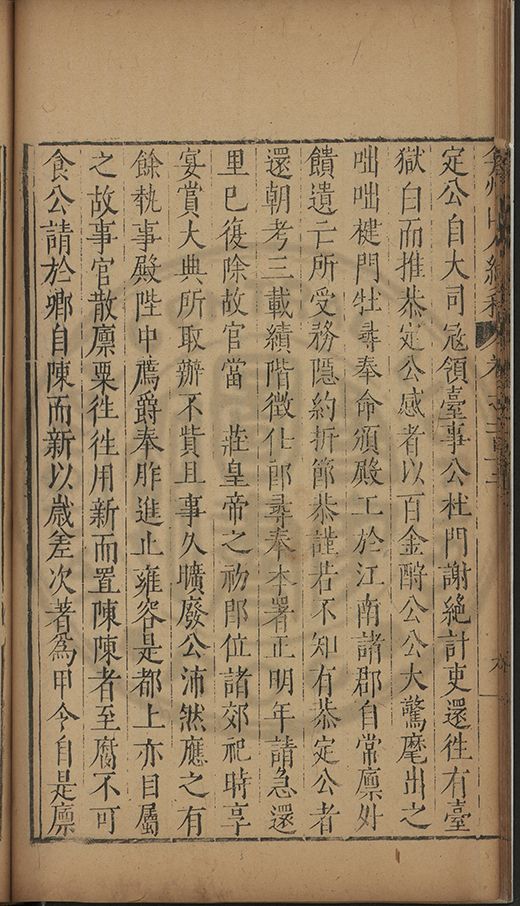 定公自大司寇領臺事公杜門謝絕計吏還徃有臺
獄白而推恭定公感者以百金酧公公大驚麾出之
咄咄楗門牡尋奉命頒殿工於江南諸郡自常廪外
饋遺亡所受務隱約折節恭謹若不知有恭定公者
還朝考三載績階徴仕郎尋奉本署正明年請急還
里巳復除故官當 莊皇帝之初郎位諸郊祀時享
宴賞大典所取辦不貲且事久曠廢公沛然應之有
餘執事殿陛中薦爵奉胙進止雍容是都上亦目屬
之故事官散廪粟徃徃用新而置陳陳者至腐不可
食公請於鄉自陳而新以歲差次著為甲令自是廪